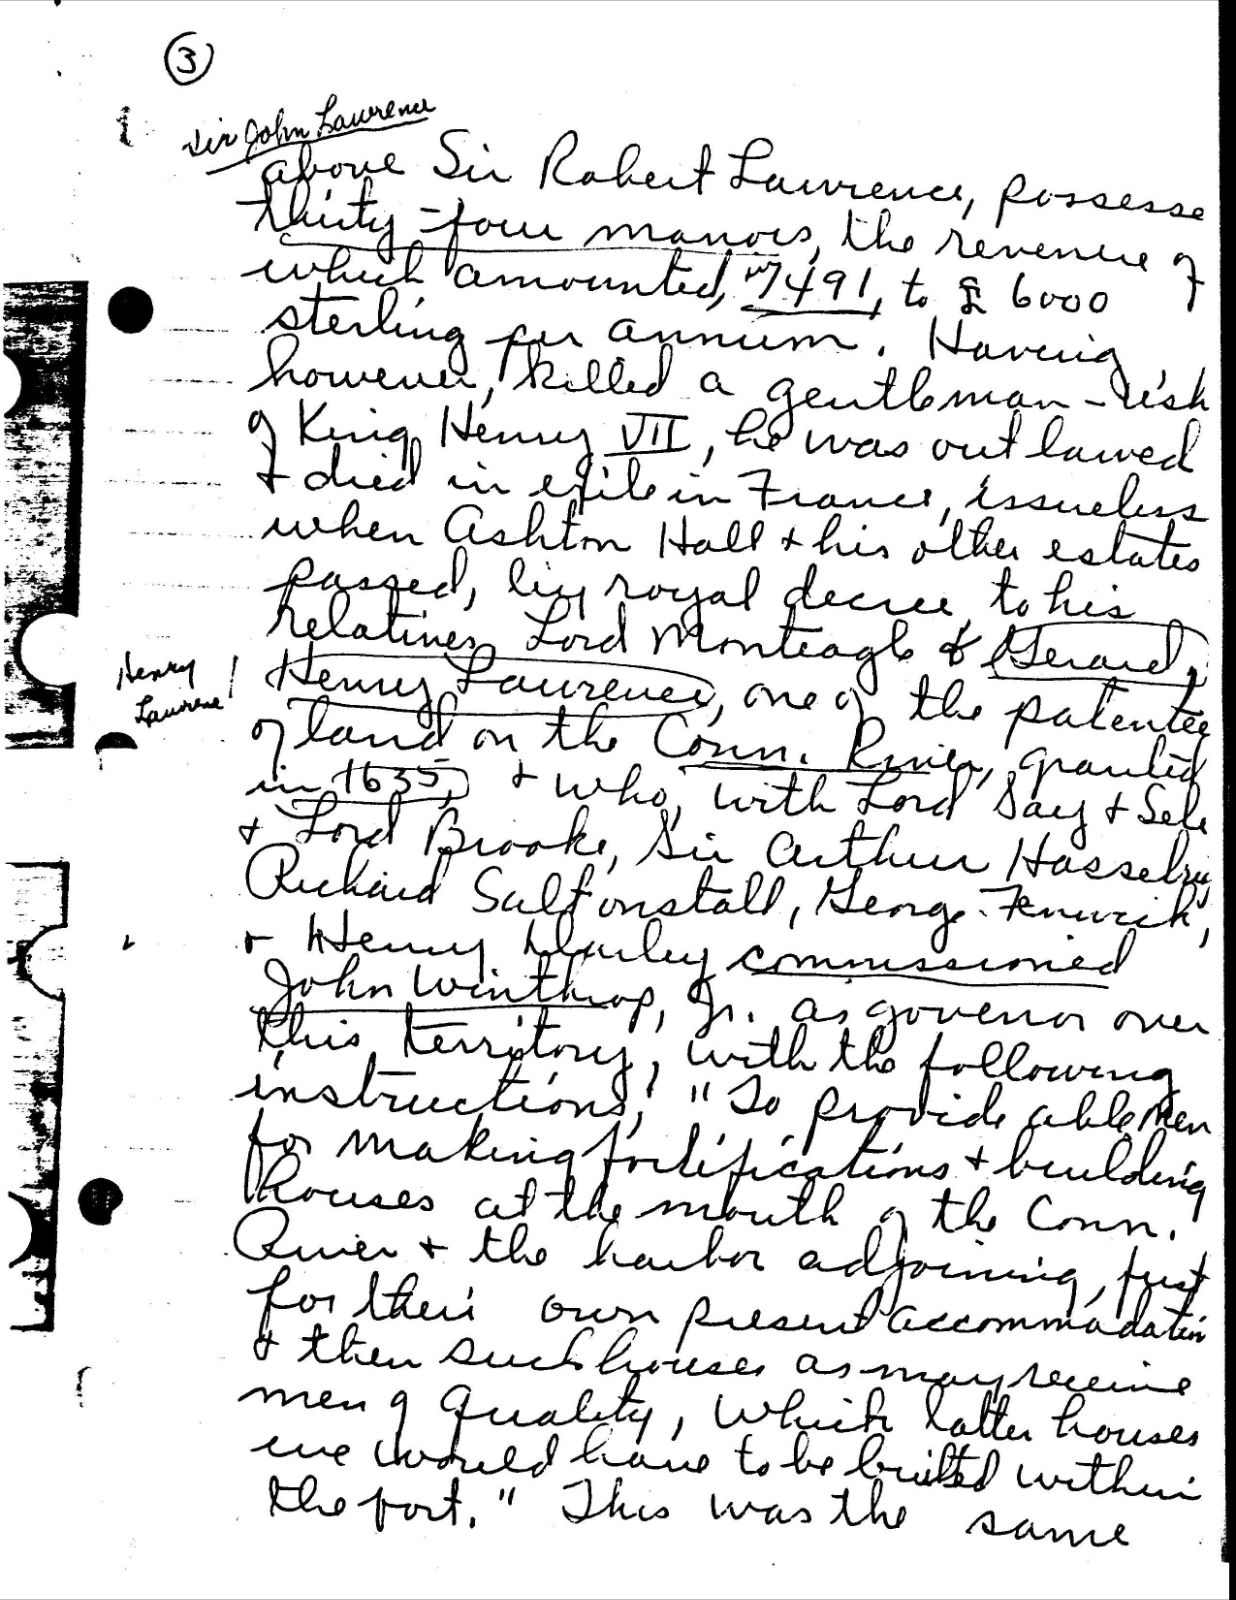 3
Sir John Lawrence
above Sir Robert Lawrence, possesse
thirty-four manors, the revenue of
which amounted, in 1491, to £ 6000
sterling per annum. Having,
however, killed a gentleman-ush
of King Henry VII, he was outlawed
+ died in exile in France, issueless
when Ashton Hall + his other estates
passed, by royal decree, to his
relatives Lord Monteagle & Gerard,
Henry
Lawrence!
Henry Lawrence, one of the patentee
of land on the Conn. River, granted
in 1635, + who, with Lord Say + Sele
+ Lord Brooke, Sir Arthur Hasselrig,
Richard Saltonstall, George Fenwick,
+ Henry Darley commissioned
John Winthrop, Jr. as governor over
this territory, with the following
instructions, "To provide able men
for making fortifications + building
houses at the mouth of the Conn.
River + the harbor adjoining, first
for their own present accommodation
+ then such houses as may receive
men of quality, which latter houses
we would have to be builted within
the fort." This was the same